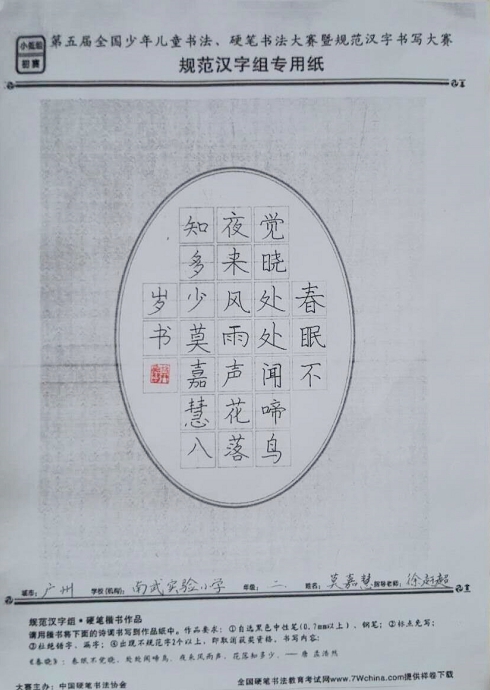 第五届全国少年儿童书法、硬笔书法大赛暨规范汉字书写大赛
规范汉字组专用纸
春眠不
觉晓处处闻啼鸟
夜来风雨声花落
知多少莫嘉慧八
岁书
城市：广州 学校(机构)：南武实验小学 年级：二 姓名：莫嘉慧 指导老师：徐超
规范汉字组·硬笔楷书作品
请用楷书将下面的诗词书写到作品纸中。作品要求：①自选黑色中性笔(0.7mm以上)、钢笔；②标点免写；
③杜绝错字、漏字；④出现不规范字2个以上，即取消获奖资格，书写内容：
《春晓》：春眠不觉晓，处处闻啼鸟，夜来风雨声，花落知多少。——唐 孟浩然
大赛主办：中国硬笔书法协会 全国硬笔书法教育考试网www.7Wchina.com提供样卷下载